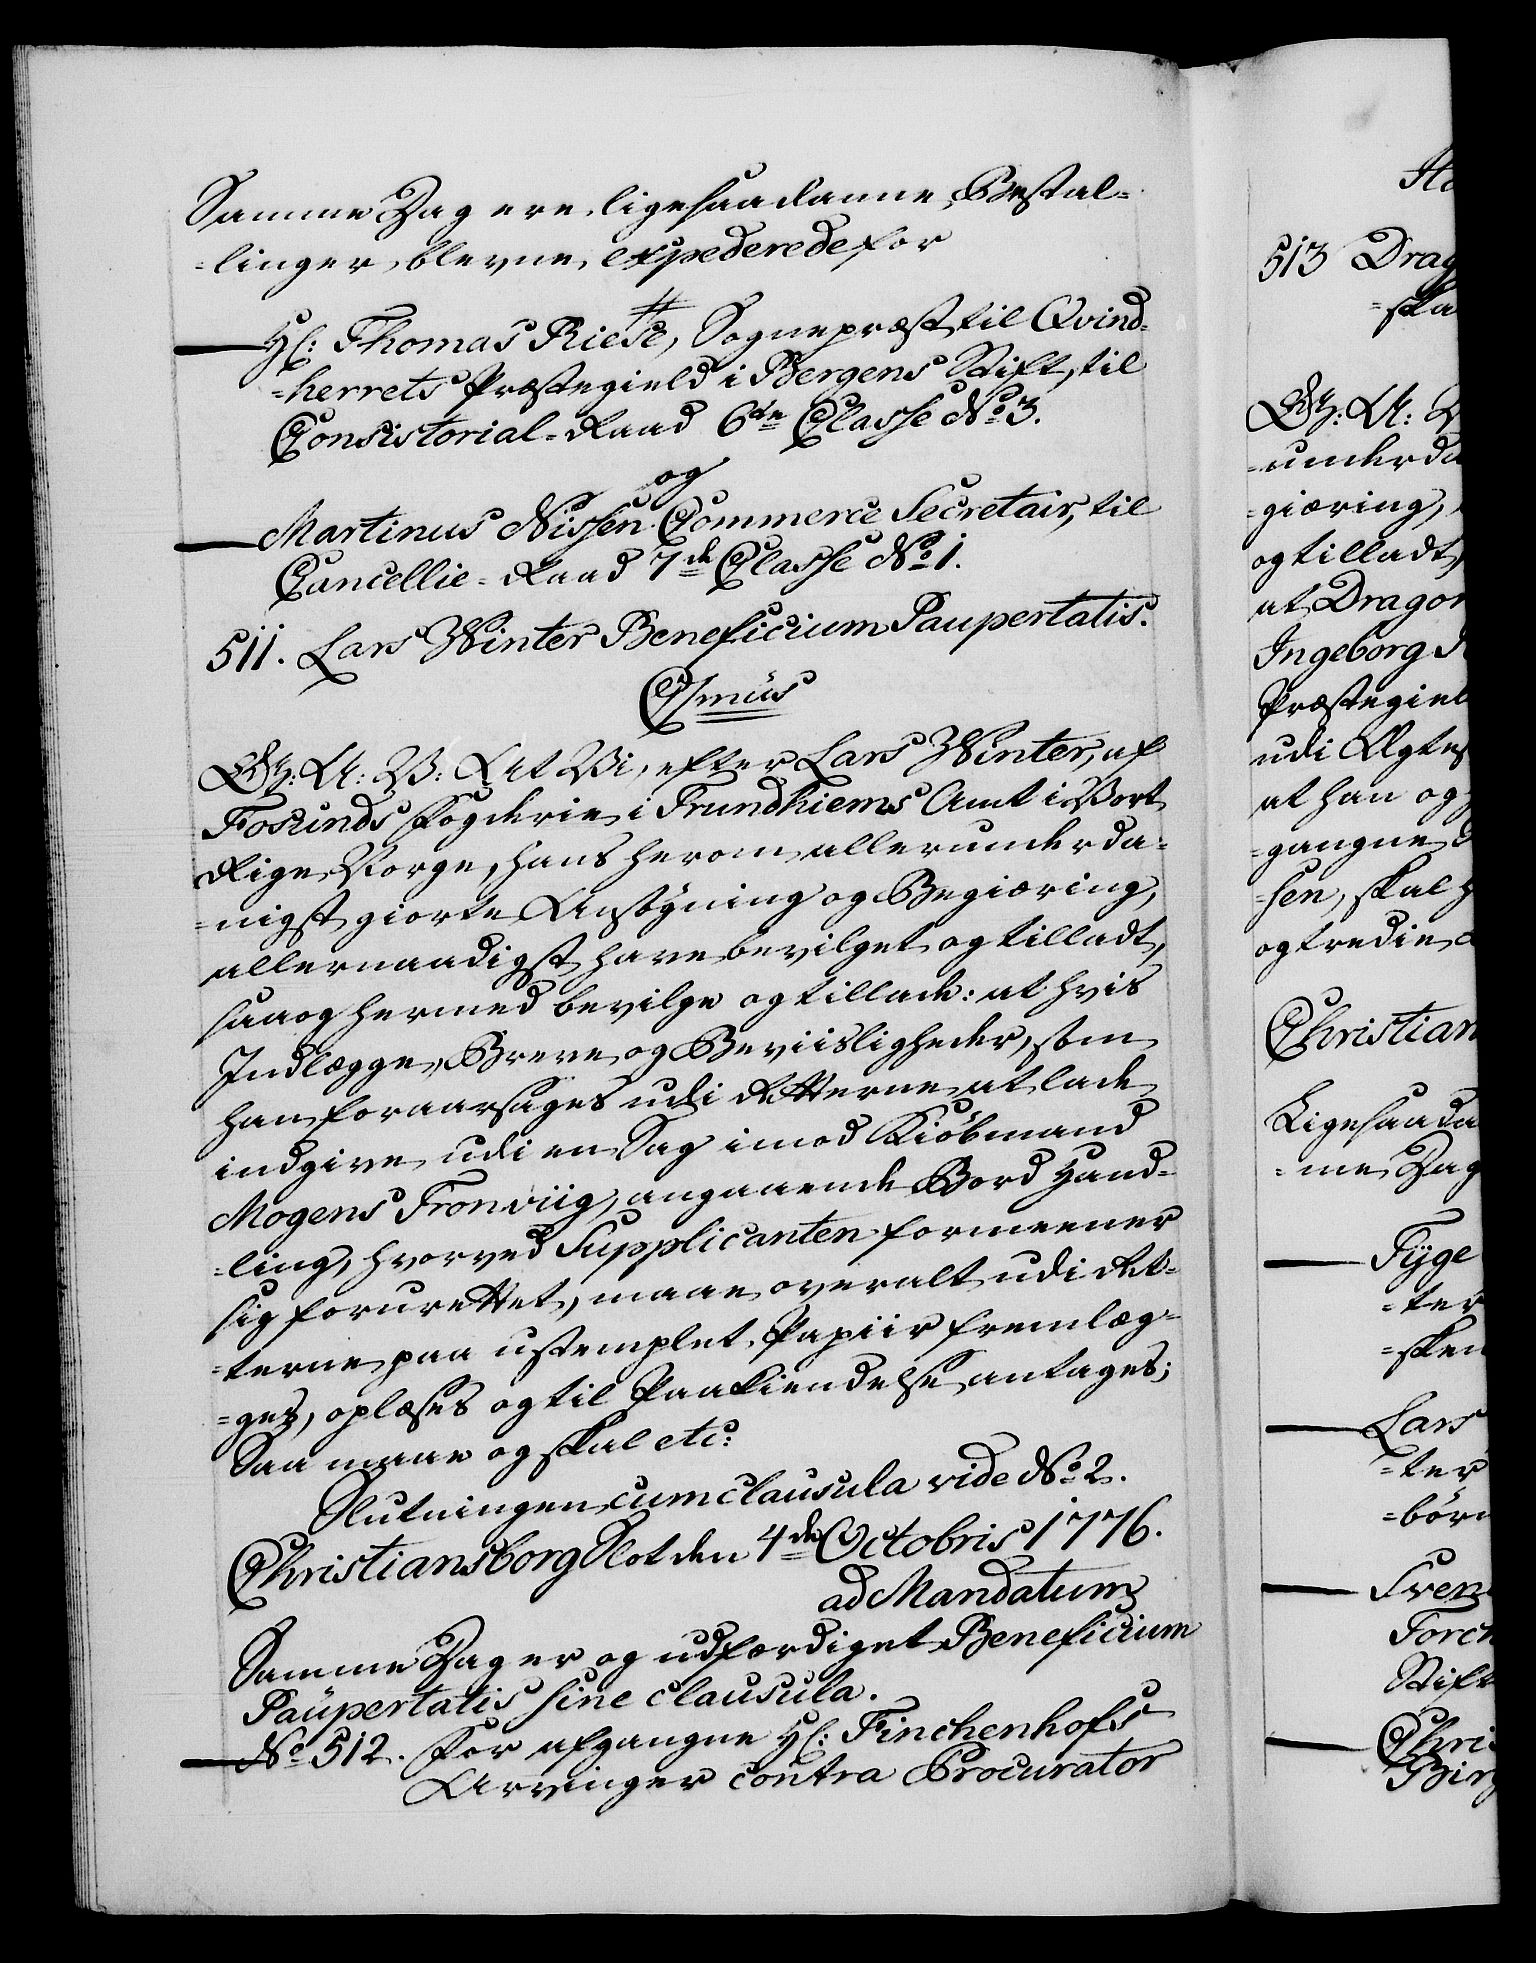 Samme Dag ere ligesaadanne Bestal=
=linger blevne expederede for
Hr: Thomas Riese, Sognepræst til Qvind=
=herrets Præstegield i Bergens Stift, til
Consistorial=Raad 6te Classe No 3.
og
Martinus Nissen Commerce Secretair, til
Cancellie=Raad 7de Classe No 1.
511. Lars Winter Beneficium Paupertatis.
C7mus
G: A: V: At Vi, efter Lars Winter, af
Fosunds Fogderie i Trundhiems Amt i Vort
Rige Norge, hans herom allerunderda=
=nigst giorte Ansøgning og Begiæring,
allernaadigst have bevilget og tilladt,
saa og hermed bevilge og tillade: at hvis
Indlægge, Breve og Beviisligheder, som
han foraarsages udi Retterne at lade
indgive udi en Sag imod Kiöbmand
Mogens Tronviig, angaaende Bord Hand=
=ling, hvorved Supplicanten formeener
sig forurettet, maae overalt udi Ret=
=terne paa ustemplet Papiir fremlæg=
=ges, oplæses og til Paakiendelse antages;
Saa maae og skal etc:
Slutningen cum clausula vide No 2.
Christiansborg Slot den 4de Octobris 1776.
ad Mandatum
Samme Dag er og udfærdiget Beneficium
Paupertatis sine clausula.
No 512. For afgangne Hr: Finchenhofs
Arvinger contra Procurator
513 Drag
=ska
G: A: V
=underda
=giæring,
og tilladt,
at Dragon
Ingeborg
Præstegiel
udi Ægtes
at han og
=gangne
=sen, skal
og tredie
Christian
Ligesaada
=me Dag
Tyge
=ter
=sken
Lars
=ter
=børn
Sven
Torch
Stift
Chris
Birg